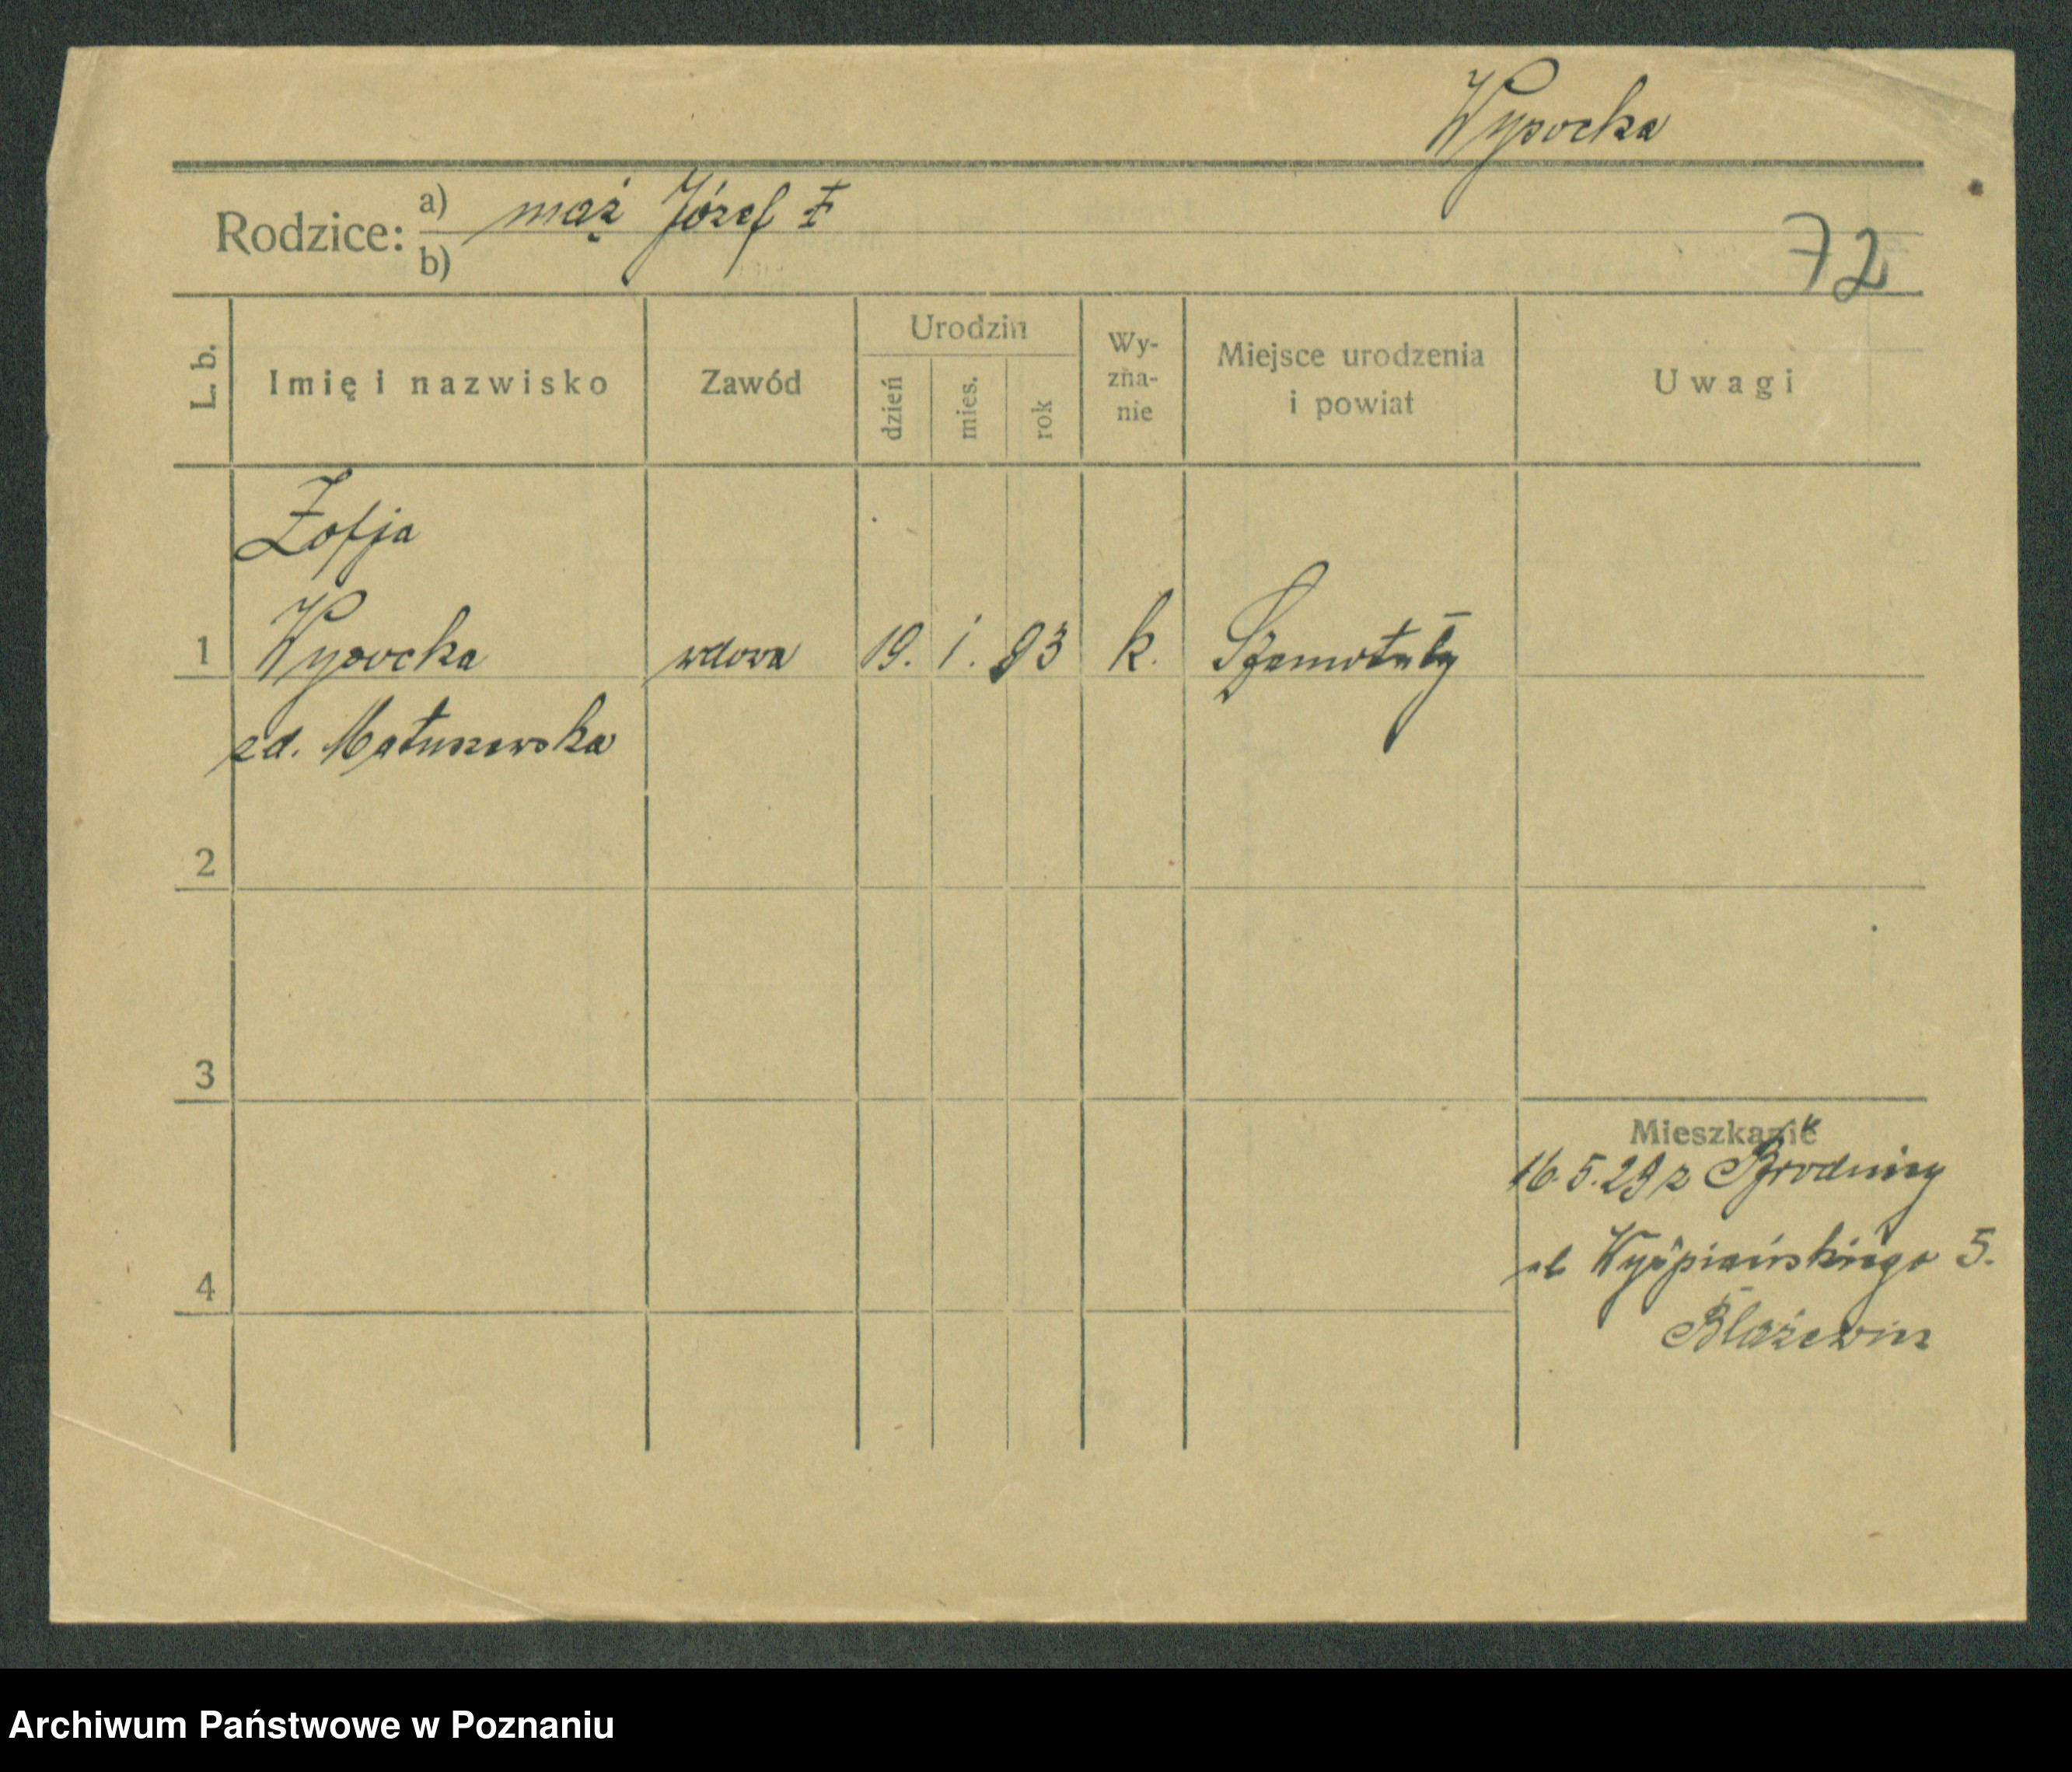 Wysocka
Rodzice: a) mąż Józef ‡
b)
72
L. b.
Imię i nazwisko
Zawód
Urodzin
dzień
mies.
rok
Wy-
zna-
nie
Miejsce urodzenia
i powiat
Uwagi
Zofja
1 Wysocka wdowa 19. 1. 93 k. Szamotuły
zd. Matuszewska
2
3
Mieszkanie
16.5.29 z Brodnicy
ul Wyśpiańskiego 5.
4
Błażewicz
Archiwum Państwowe w Poznaniu